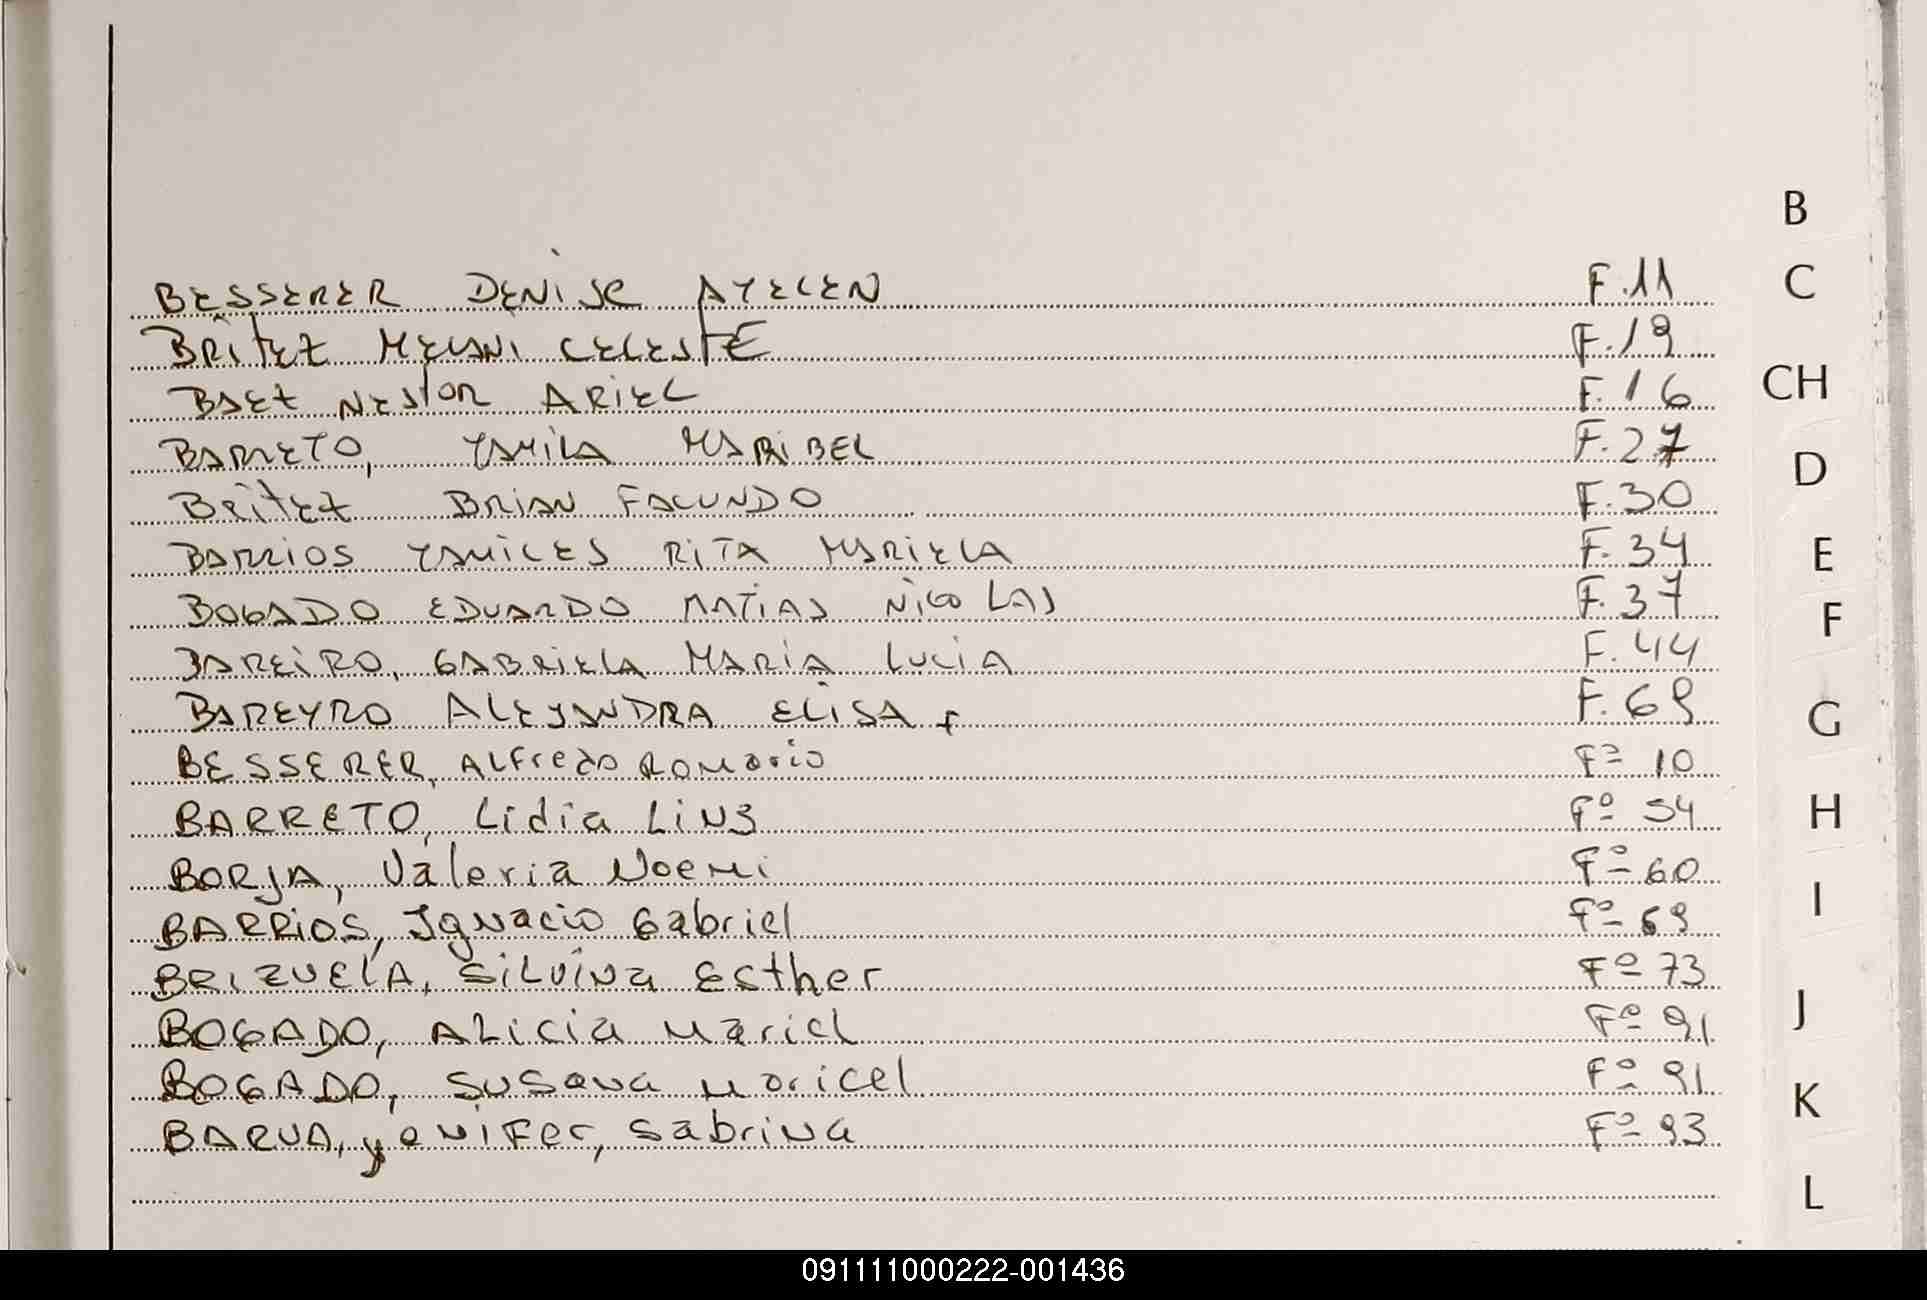 B
BESSERER DENISE AYELEN F.11
C
BRITEZ MELANI CELESTE F.19
BAEZ NESTOR ARIEL F.16
CH
BARRETO, YAMILA MARIBEL F.27
D
BRITEZ BRIAN FACUNDO F.30
BARRIOS YAMILES RITA MARIELA F.34
E
BOGADO EDUARDO MATIAS NICOLAS F.37
F
BAREIRO, GABRIELA MARIA LUCIA F.44
BAREYRO ALEJANDRA ELISA F.69
G
BESSERER, ALFredo ROMario Fº 10
BARRETO, Lidia Lina Fº 54
H
BORJA, Valeria Noemi Fº 60
I
BARRIOS, Ignacio Gabriel Fº 69
BRIZUELA, SiLvina Esther Fº 73
J
BOGADO, ALicia Mariel Fº 91
BOGADO, Susana Maricel Fº 91
K
BARUA, yeniFer, Sabrina Fº 93
L
091111000222-001436